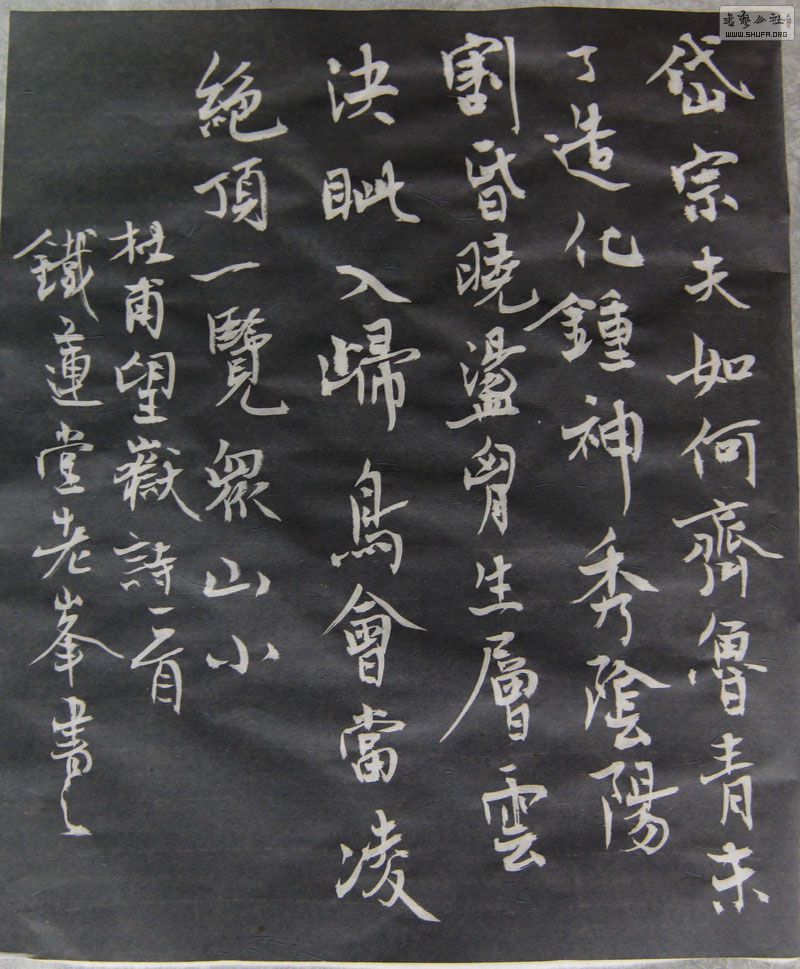 岱宗夫如何齊魯青未
了造化鍾神秀陰陽
割昏曉盪胷生層雲
決眦入歸鳥會當凌
絕頂一覽衆山小
杜甫望嶽詩一首
鐵蓮堂老峯書之
書藝公社
WWW.SHUFA.ORG